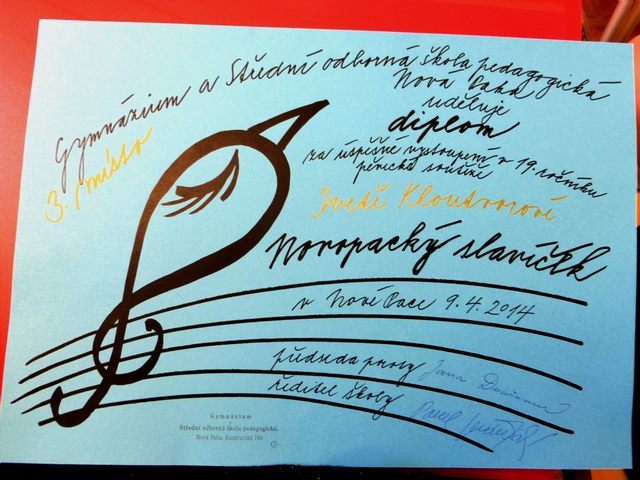 Gymnázium a Střední odborná škola pedagogická
Nová Paka
uděluje
diplom
za úspěšné vystoupení v 19. ročníku
pěvecké soutěže
3. místo
Ivetě
Novopacký slavíček
v Nové Pace 9. 4. 2014
předseda poroty Jana
ředitel školy Pavel
Gymnázium
Střední odborná škola pedagogická,
Nová Paka, Kumburská 740